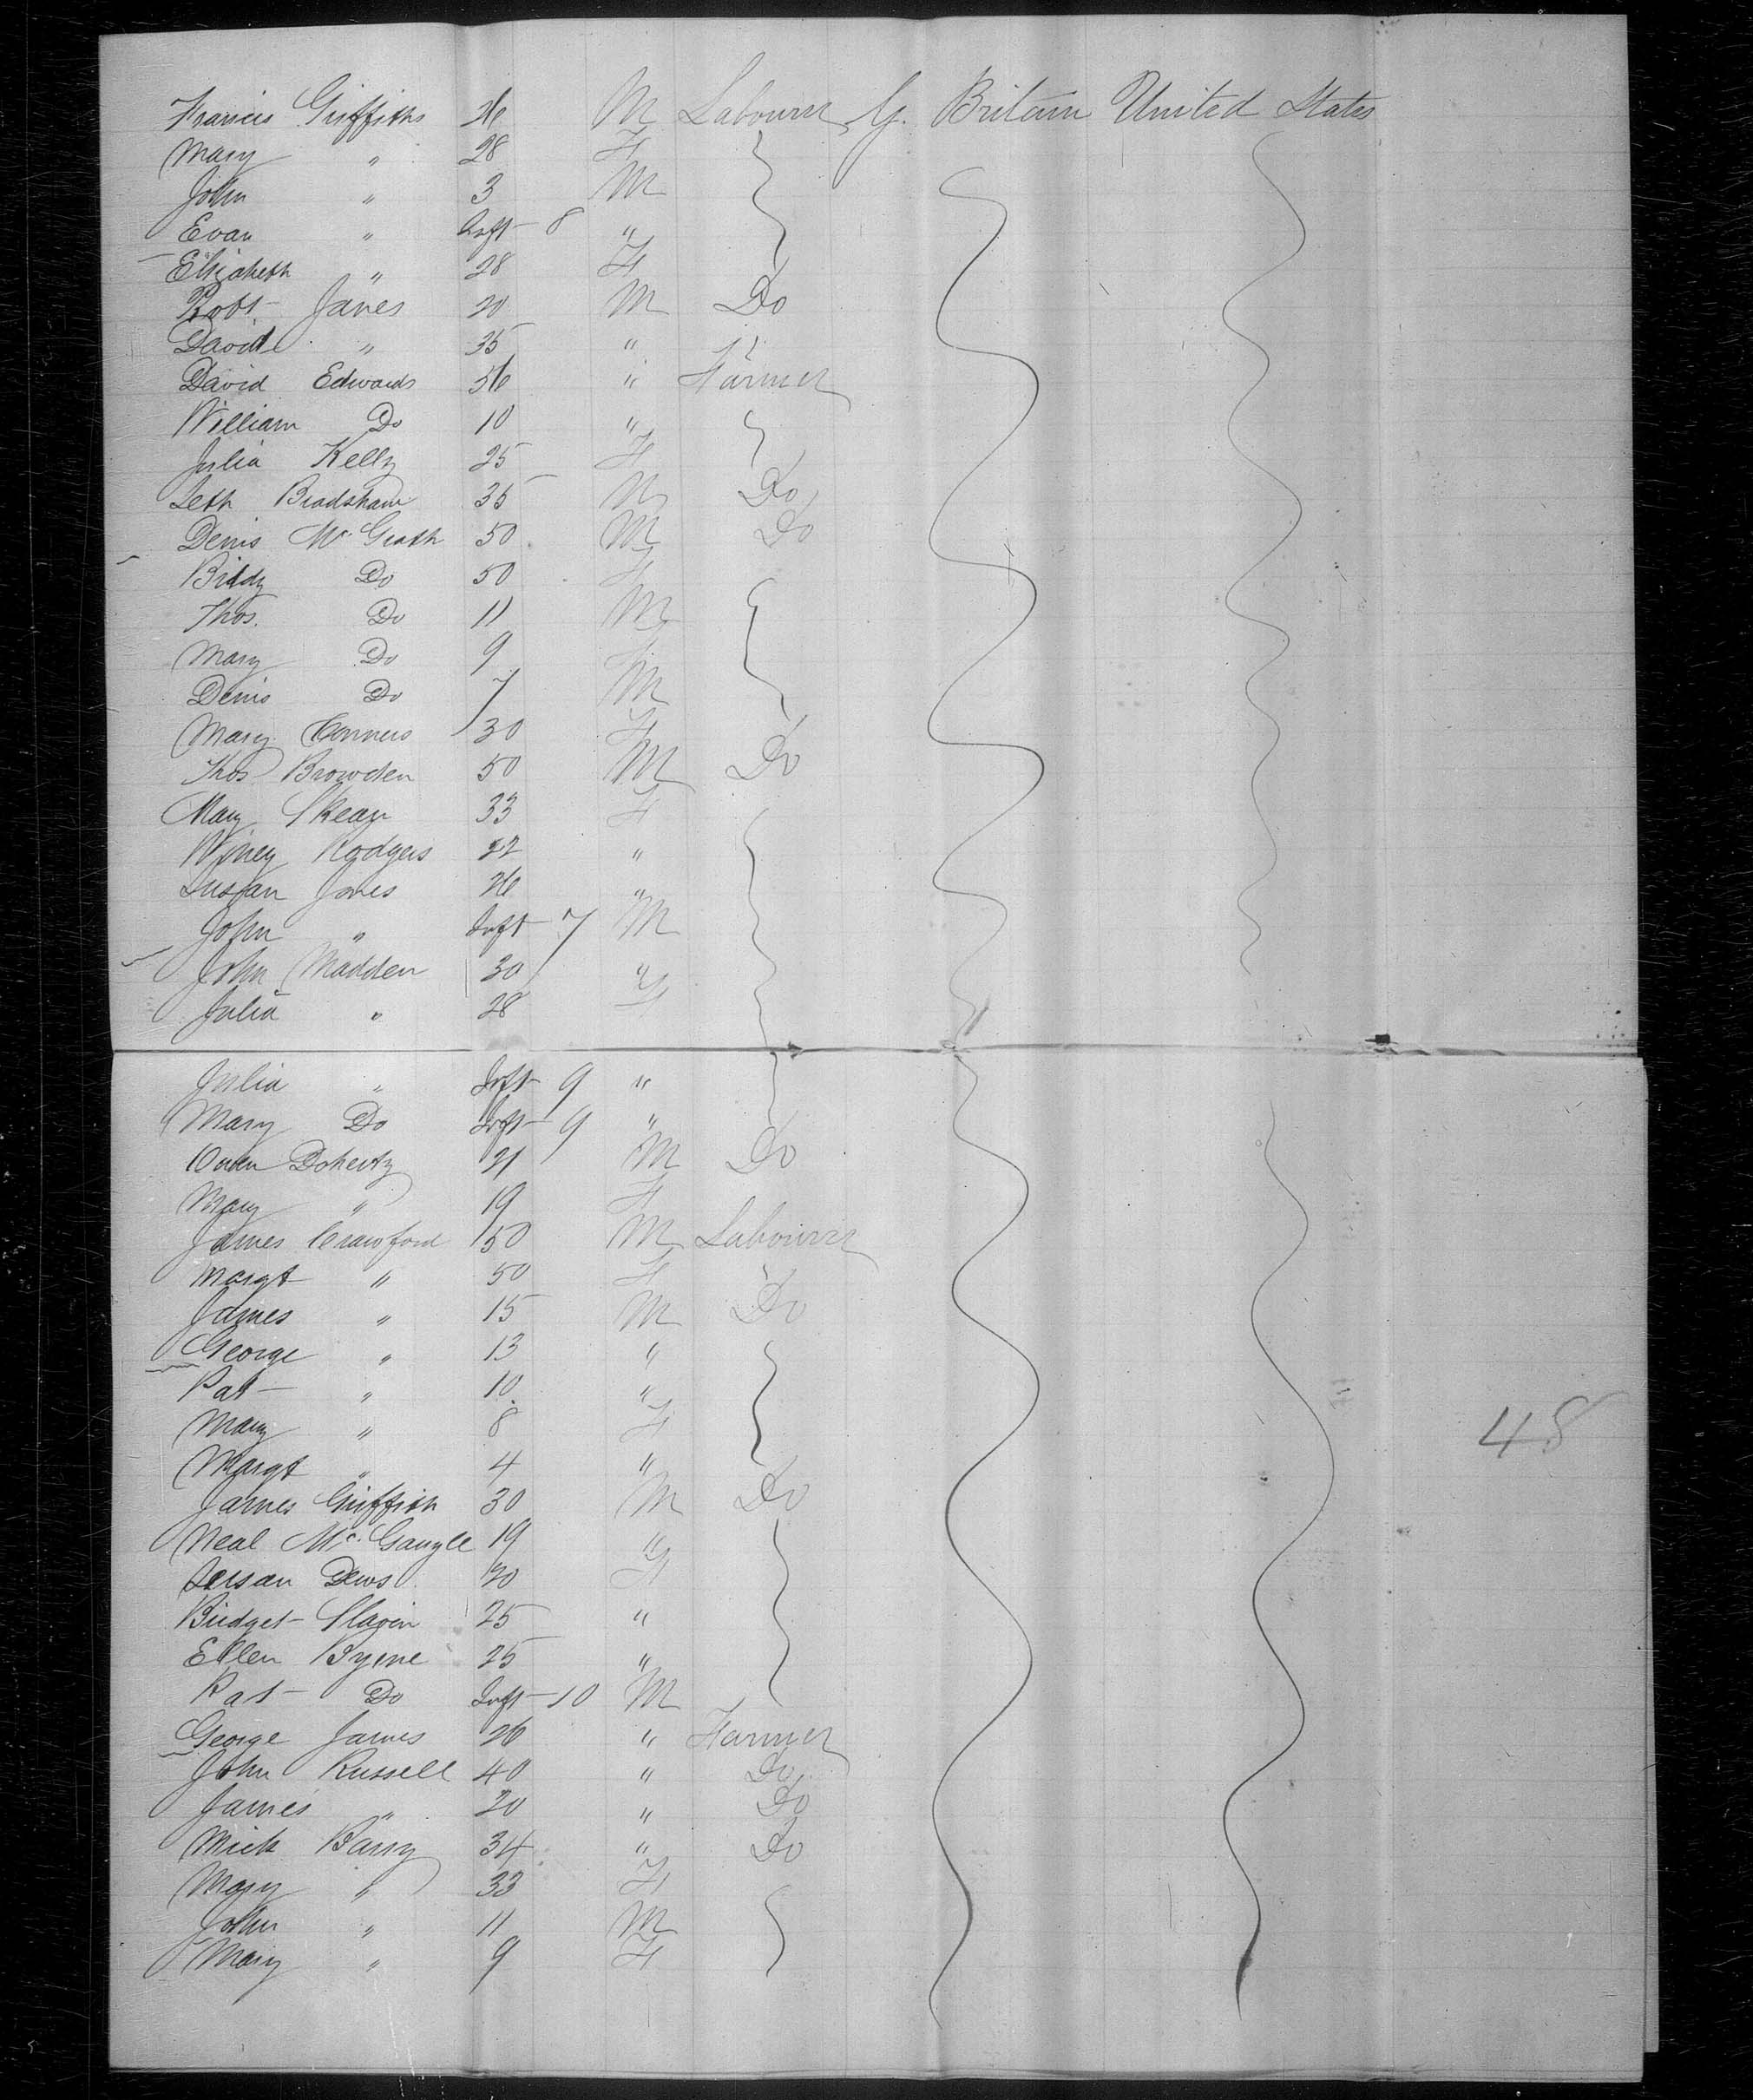 Francis Griffiths 26 M Labourer G. Britain United States
Mary " 28 F
John " 3 M
Evan " Inft 8 "
Elizabeth " 28 F
Robt Janes 20 M Do
David " 35 " "
David Edwards 56 " Farmer
William Do 10 "
Julia Kelly 25 F
Seth Bradshaw 35 M Do
Denis Mc Grath 50 M Do
Biddy Do 50 F
Thos. Do 11 M
Mary Do 9 F
Denis Do 7 M
Mary Conners 30 F
Thos Browden 50 M Do
Mary Skean 33 F
Winey Rodgers 22 "
Susan Jones 26 "
John " Inft 7 M
John Madden 30 "
Julia " 28 F
Julia " Inft 9 "
Mary Do Inft 9 "
Owen Doherty 21 M Do
Mary " 19 F
James Crawford 50 M Labourer
Margt " 50 F
James " 15 M Do
George " 13 "
Pat " 10 "
Mary " 8 F
Margt " 4 "
James Griffith 30 M Do
Neal Mc. Gaugle 19 "
Susan Dews 20 F
Bridget Slavin 25 "
Ellen Byrne 25 "
Pat Do Inft 10 M
George James 26 " Farmer
John Russell 40 " Do
James " 20 " Do
Mick Barry 34 " Do
Mary " 33 F
John " 11 M
Mary " 9 F
48